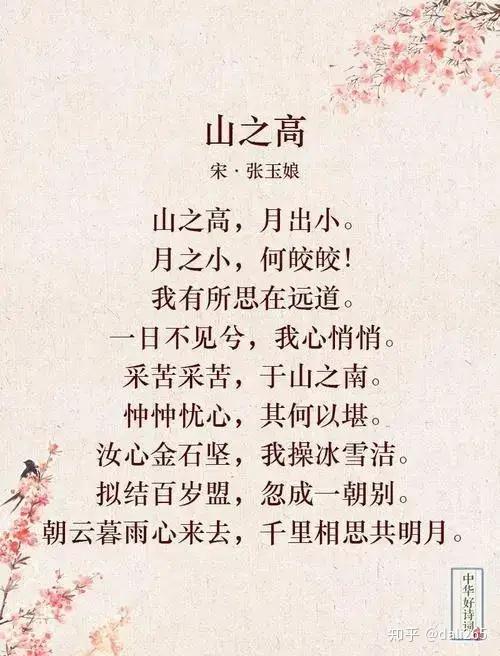 山之高
宋·张玉娘
山之高，月出小。
月之小，何皎皎！
我有所思在远道。
一日不见兮，我心悄悄。
采苦采苦，于山之南。
忡忡忧心，其何以堪。
汝心金石坚，我操冰雪洁。
拟结百岁盟，忽成一朝别。
朝云暮雨心来去，千里相思共明月。
中华好诗词
知乎 @dali265